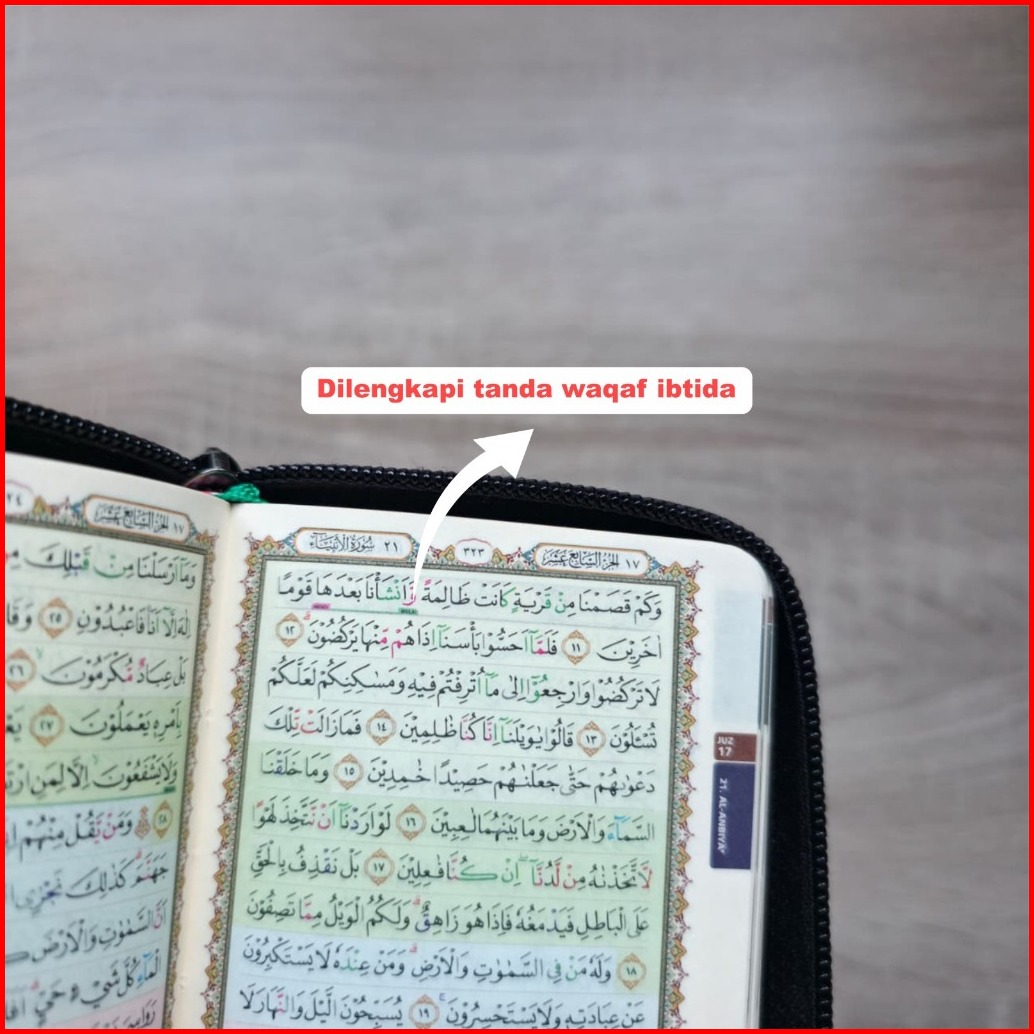 Dilengkapi tanda waqaf ibtida
١٧ الجزء السابع عشر
٣٢٣
٢١ سورة الأنبياء
وَكَمْ قَصَمْنَا مِنْ قَرْيَةٍ كَانَتْ ظَالِمَةً وَّاَنْشَأْنَا بَعْدَهَا قَوْمًا
اٰخَرِيْنَ ١١ فَلَمَّآ اَحَسُّوْا بَأْسَنَآ اِذَا هُمْ مِّنْهَا يَرْكُضُوْنَ ١٢
لَا تَرْكُضُوْا وَارْجِعُوْٓا اِلٰى مَآ اُتْرِفْتُمْ فِيْهِ وَمَسٰكِنِكُمْ لَعَلَّكُمْ
تُسْـَٔلُوْنَ ١٣ قَالُوْا يٰوَيْلَنَآ اِنَّا كُنَّا ظٰلِمِيْنَ ١٤ فَمَا زَالَتْ تِّلْكَ
دَعْوٰىهُمْ حَتّٰى جَعَلْنٰهُمْ حَصِيْدًا خٰمِدِيْنَ ١٥ وَمَا خَلَقْنَا
السَّمَاۤءَ وَالْاَرْضَ وَمَا بَيْنَهُمَا لٰعِبِيْنَ ١٦ لَوْ اَرَدْنَآ اَنْ نَّتَّخِذَ لَهْوًا
لَّاتَّخَذْنٰهُ مِنْ لَّدُنَّآ اِنْ كُنَّا فٰعِلِيْنَ ١٧ بَلْ نَقْذِفُ بِالْحَقِّ
عَلَى الْبَاطِلِ فَيَدْمَغُهٗ فَاِذَا هُوَ زَاهِقٌۗ وَلَكُمُ الْوَيْلُ مِمَّا تَصِفُوْنَ
١٨ وَلَهٗ مَنْ فِى السَّمٰوٰتِ وَالْاَرْضِۗ وَمَنْ عِنْدَهٗ لَا يَسْتَكْبِرُوْنَ
عَنْ عِبَادَتِهٖ وَلَا يَسْتَحْسِرُوْنَ ١٩ يُسَبِّحُوْنَ الَّيْلَ وَالنَّهَارَ لَا
JUZ
17
21. AL-ANBIYĀ'
١٧ الجزء السابع عشر
وَمَآ اَرْسَلْنَا مِنْ قَبْلِكَ
اِلٰهَ اِلَّآ اَنَا۠ فَاعْبُدُوْنِ ٢٥
بَلْ عِبَادٌ مُّكْرَمُوْنَ ٢٦
بِاَمْرِهٖ يَعْمَلُوْنَ ٢٧
وَلَا يَشْفَعُوْنَ اِلَّا لِمَنِ
٢٨ وَمَنْ يَّقُلْ مِنْهُمْ
جَهَنَّمَ كَذٰلِكَ نَجْزِى
اَنَّ السَّمٰوٰتِ وَالْاَرْضَ
الْمَاۤءِ كُلَّ شَيْءٍ حَيٍّۗ